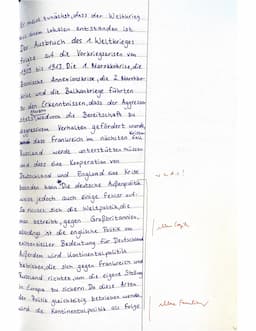 Er meint zunächst, dass der Weltkrieg
aus einem lokalen entstanden ist.
Der Ausbruch des 1. Weltkrieges
fußte auf die Vorkriegskrisen von
bis 1913. Die 1. Marokkokrise, die
Bosnische Annexionskrise, die 2. Marokko-
krise und die Balkankriege führten
zu den Erkenntnissen, dass der Aggressor
die Bereitschaft zu
aggressivem Verhalten gefördert wurde,
dass Frankreich im nächsten
Russland werde unterstützen müssen
und dass eine Kooperation von
Deutschland und England eine Krise
kann. Die deutsche Außenpolitik
weise jedoch auch einige Fehler auf.
So die Weltpolitik, die
man betreibt, gegen Großbritannien,
allerdings ist die englische Politik von
existenzieller Bedeutung für Deutschland.
Außerdem wird Kontinentalpolitik
betrieben, die sich gegen Frankreich und
Russland richtet, um die eigene Stellung
in Europa zu sichern. Da diese Arten
der Politik gleichzeitig betrieben werden,
wird die Kontinentalpolitik als Folge